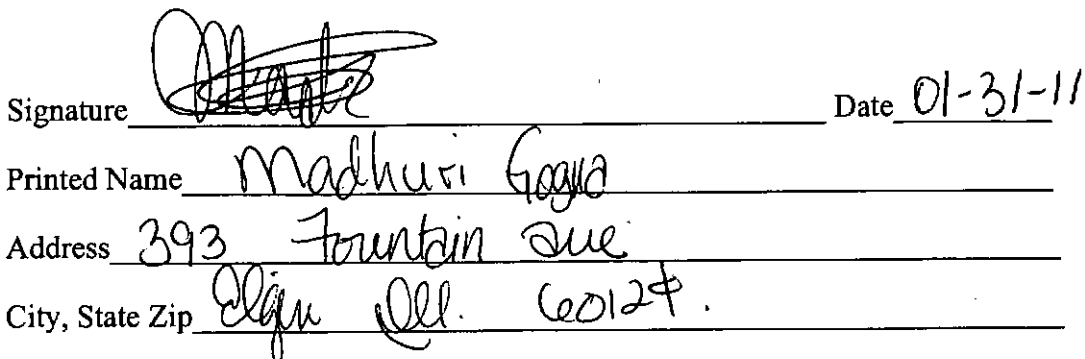 Signature Date 01-31-11
Printed Name Madhuri Gogna
Address 393 Fountain Ave
City, State Zip Elgin Ill. 60124.